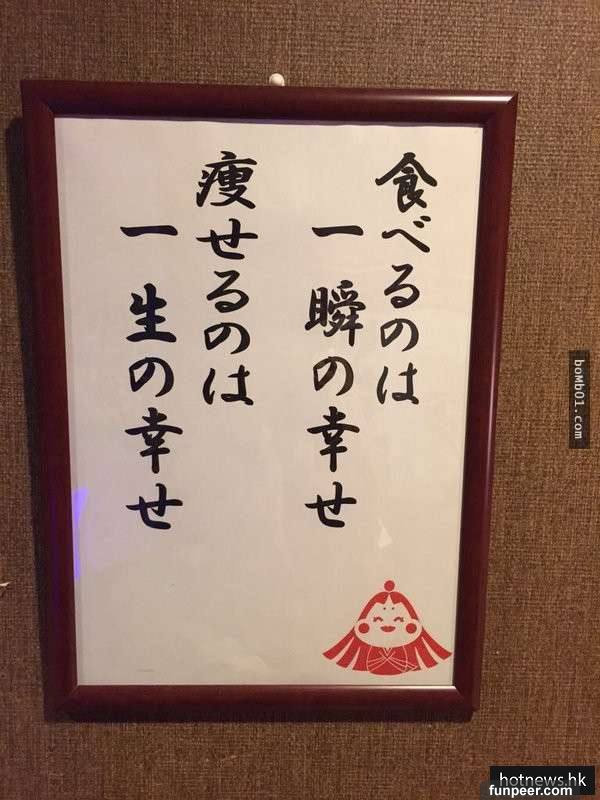 食べるのは
一瞬の幸せ
痩せるのは
一生の幸せ
boMb01.com
hotnews.hk
funpeer.com